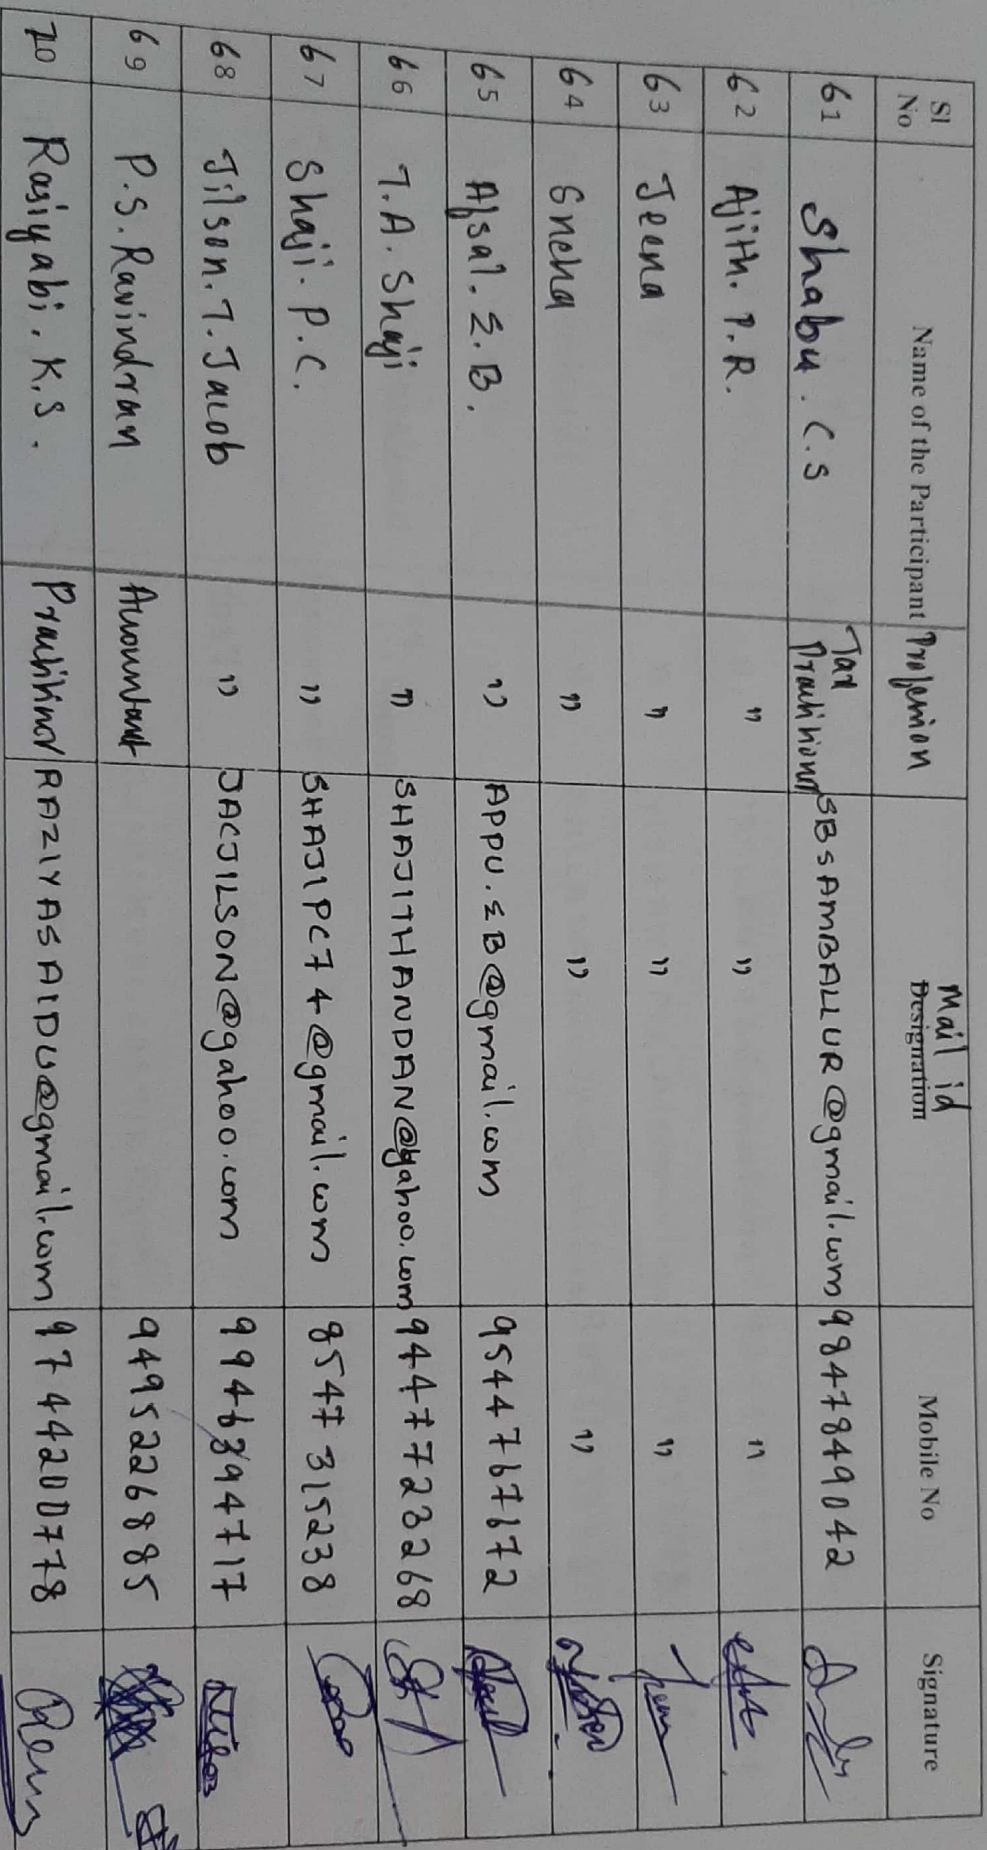 Sl No Name of the Participant Profession Mail id Designation Mobile No Signature
61 Shabu . C.S Tax Practitioner SBSAMBALLUR@gmail.com 9847849042
62 Ajith. P.R. " " "
63 Jeena " " "
64 Sneha " " "
65 Afsal. E.B. " APPU.EB@gmail.com 9544767672
66 T.A. Shaji " SHAJITHANDAN@yahoo.com 9447723268
67 Shaji. P.C. " SHAJIPC74@gmail.com 8547315238
68 Jilson. T. Jacob " JACJILSON@yahoo.com 9946394717
69 P.S. Ravindran Accountant 9495226885
70 Rasiyabi. K.S. Practitioner RAZIYASAIDU@gmail.com 9744200778